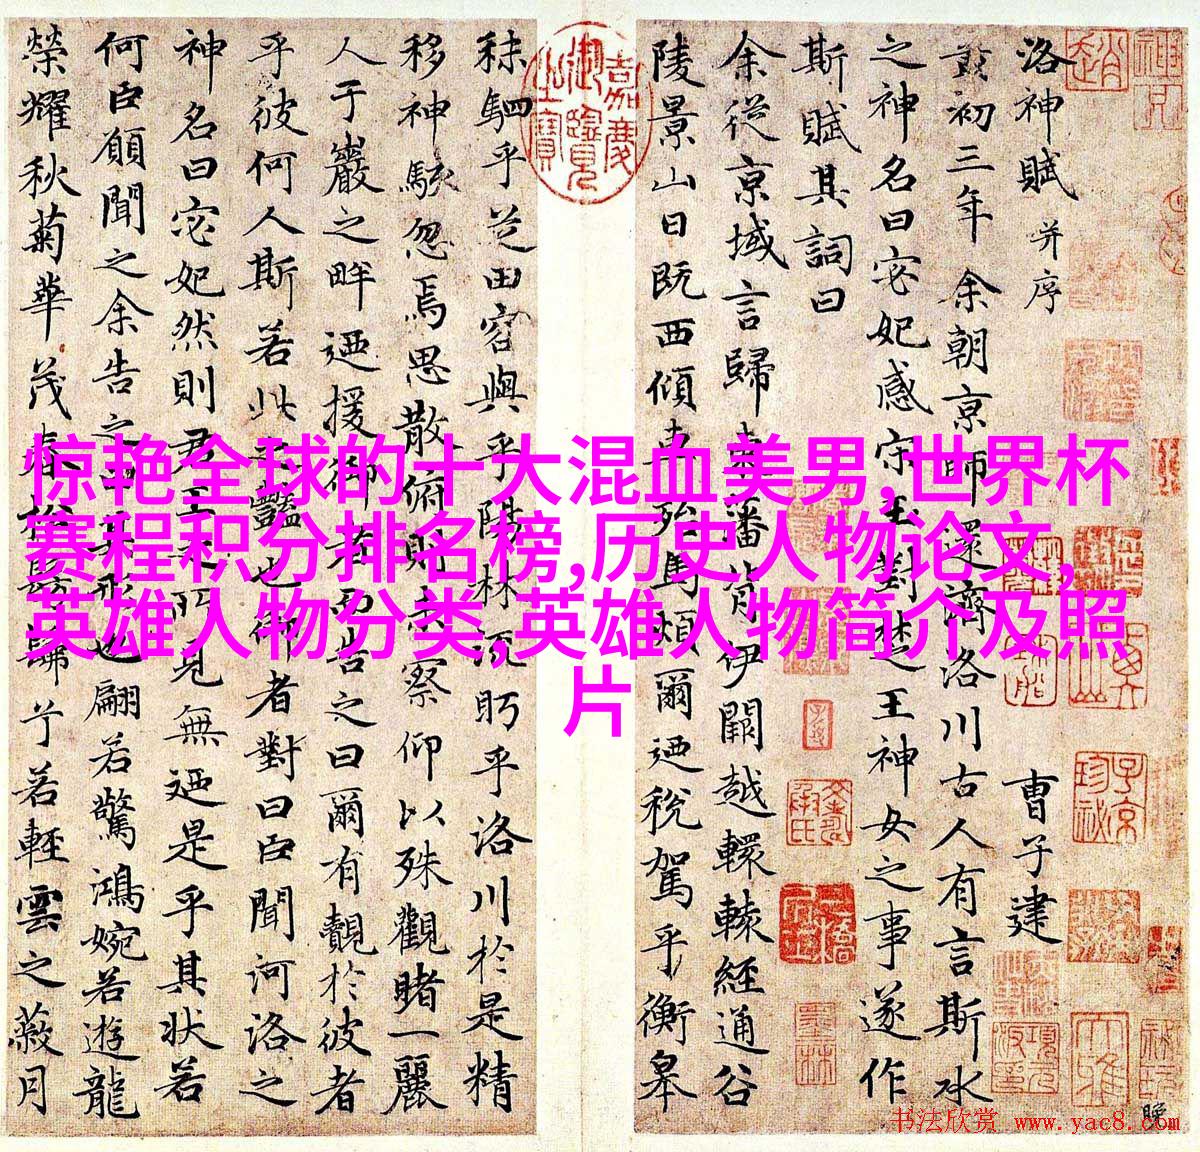 洛神賦 并序 曹子建
黃初三年余朝京師還濟洛川古人有言斯水
之神名曰宓妃感宋玉對楚王神女之事遂作
斯賦其詞曰
余從京域言歸東藩背伊闕越轘轅經通谷
陵景山日既西傾車殆馬煩爾迺稅駕乎衡皋
秣駟乎芝田容與乎陽林流眄乎洛川於是精
移神駭忽焉思散俯則未察仰以殊觀睹一麗
人于巖之畔迺援御者而告之曰爾有覿於彼者
乎彼何人斯若此之豔也御者對曰臣聞河洛之
神名曰宓妃然則君王之所見無迺是乎其狀若
何臣願聞之余告之曰其形也翩若驚鴻婉若遊龍
榮耀秋菊華茂春松髣髴兮若輕雲之蔽月
嘉慶御覽之寶
惊艳全球的十大混血美男,世界杯
赛程积分排名榜,历史人物论文,
英雄人物分类,英雄人物简介及照
片
书法欣赏 www.yac8.com